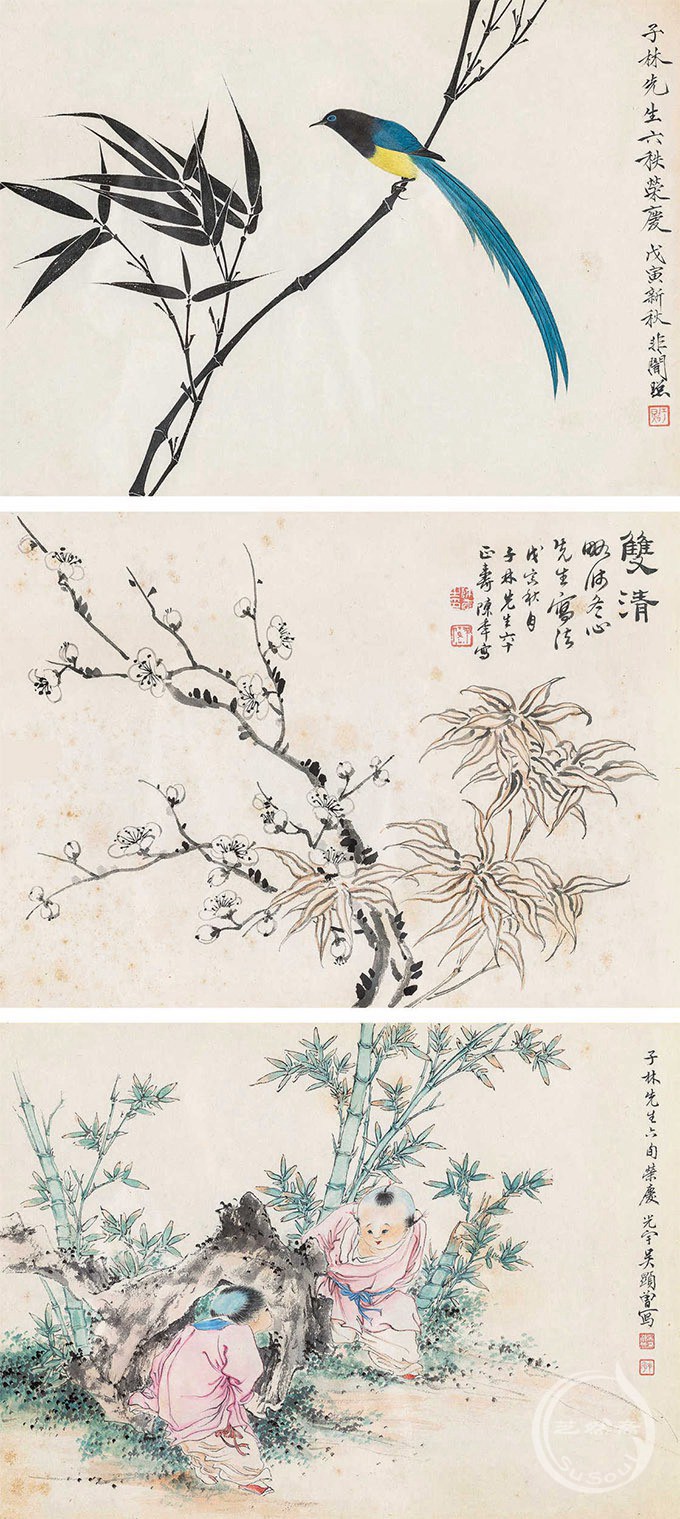 子林先生六秩荣慶 戊寅新秋 非闇照
雙清
略师冬心
先生寫法
戊寅秋月
子林先生六十
正壽 陳年寫
子林先生六旬榮慶 光宇吴顯曾寫
SuSou